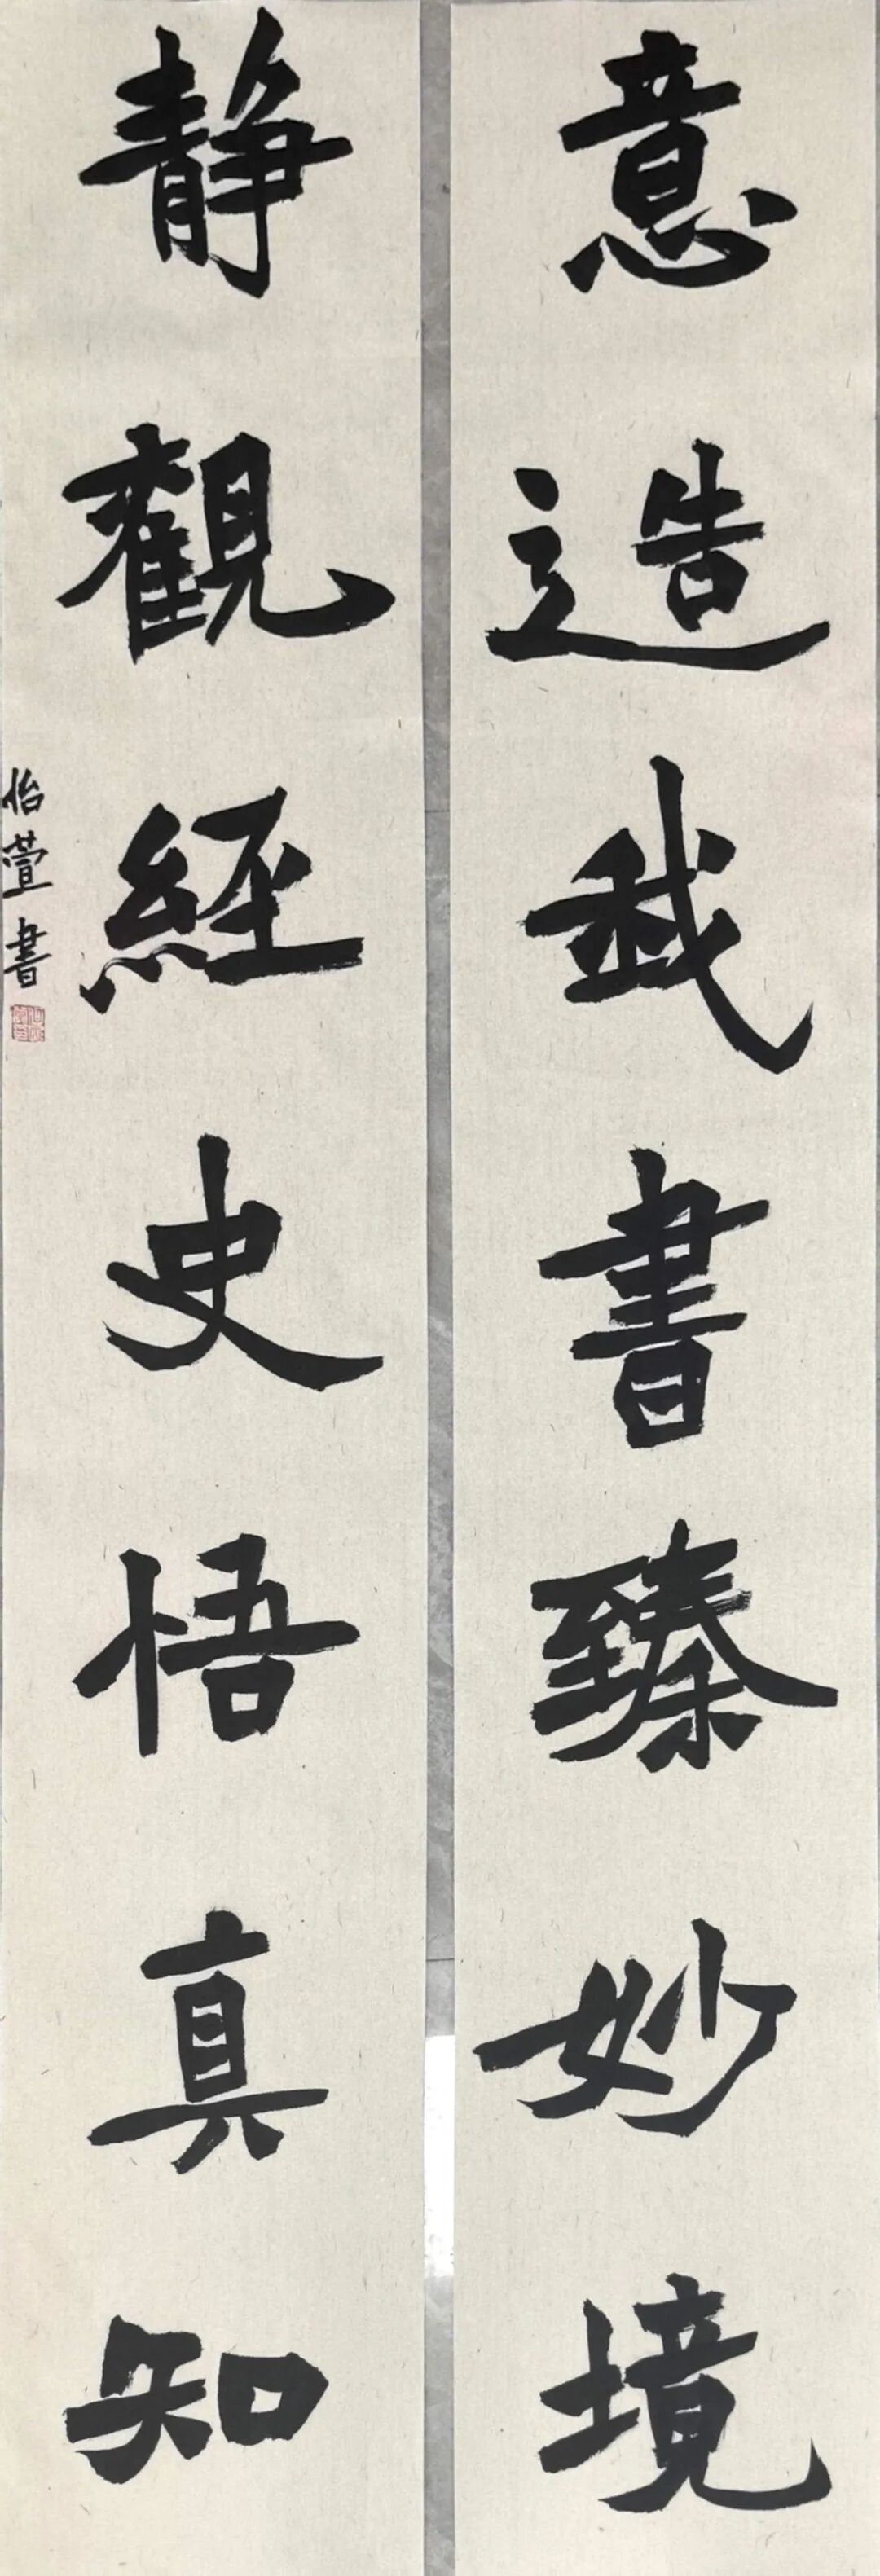 意造我書臻妙境
静觀經史悟真知
怡萱書